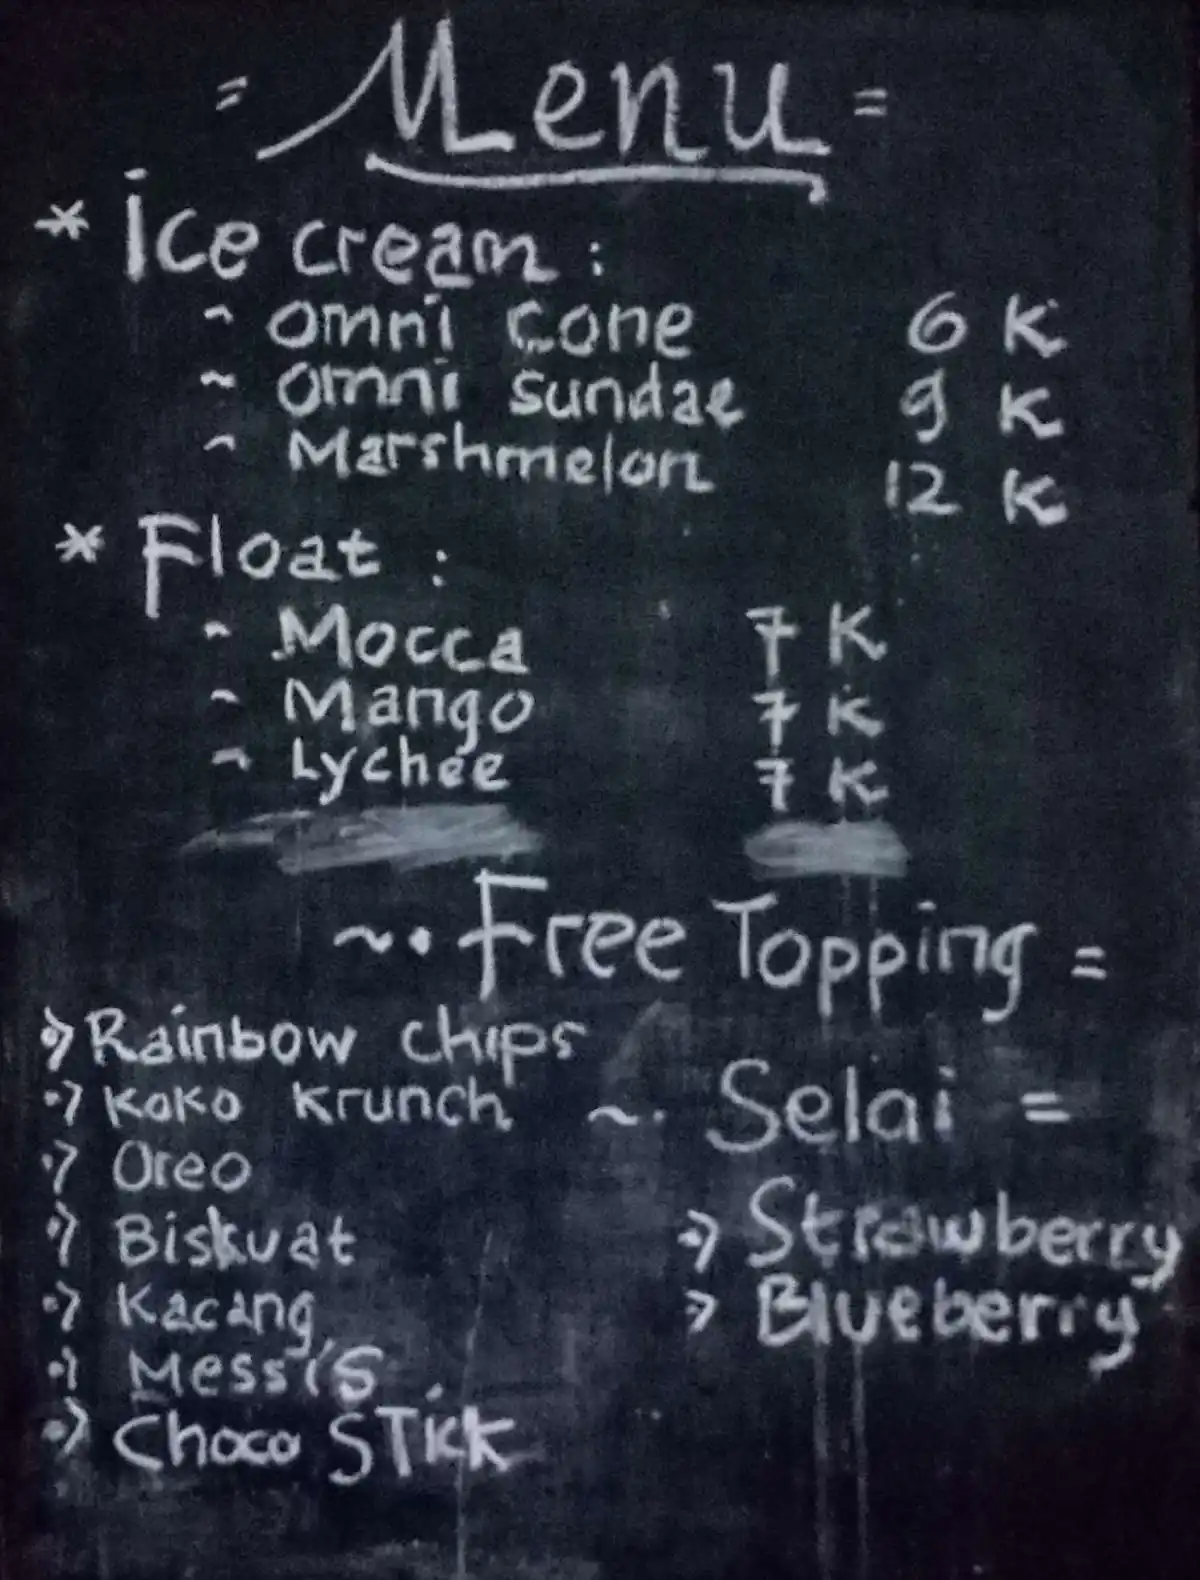 = Menu =
* Ice cream :
~ Omni Cone 6 K
~ Omni Sundae 9 K
~ Marshmelon 12 K
* Float :
~ Mocca 7 K
~ Mango 7 K
~ Lychee 7 K
~. Free Topping =
Rainbow chips
Koko Krunch
Oreo
Biskuat
Kacang
Mess is
Choco STick
~. Selai =
Strawberry
Blueberry